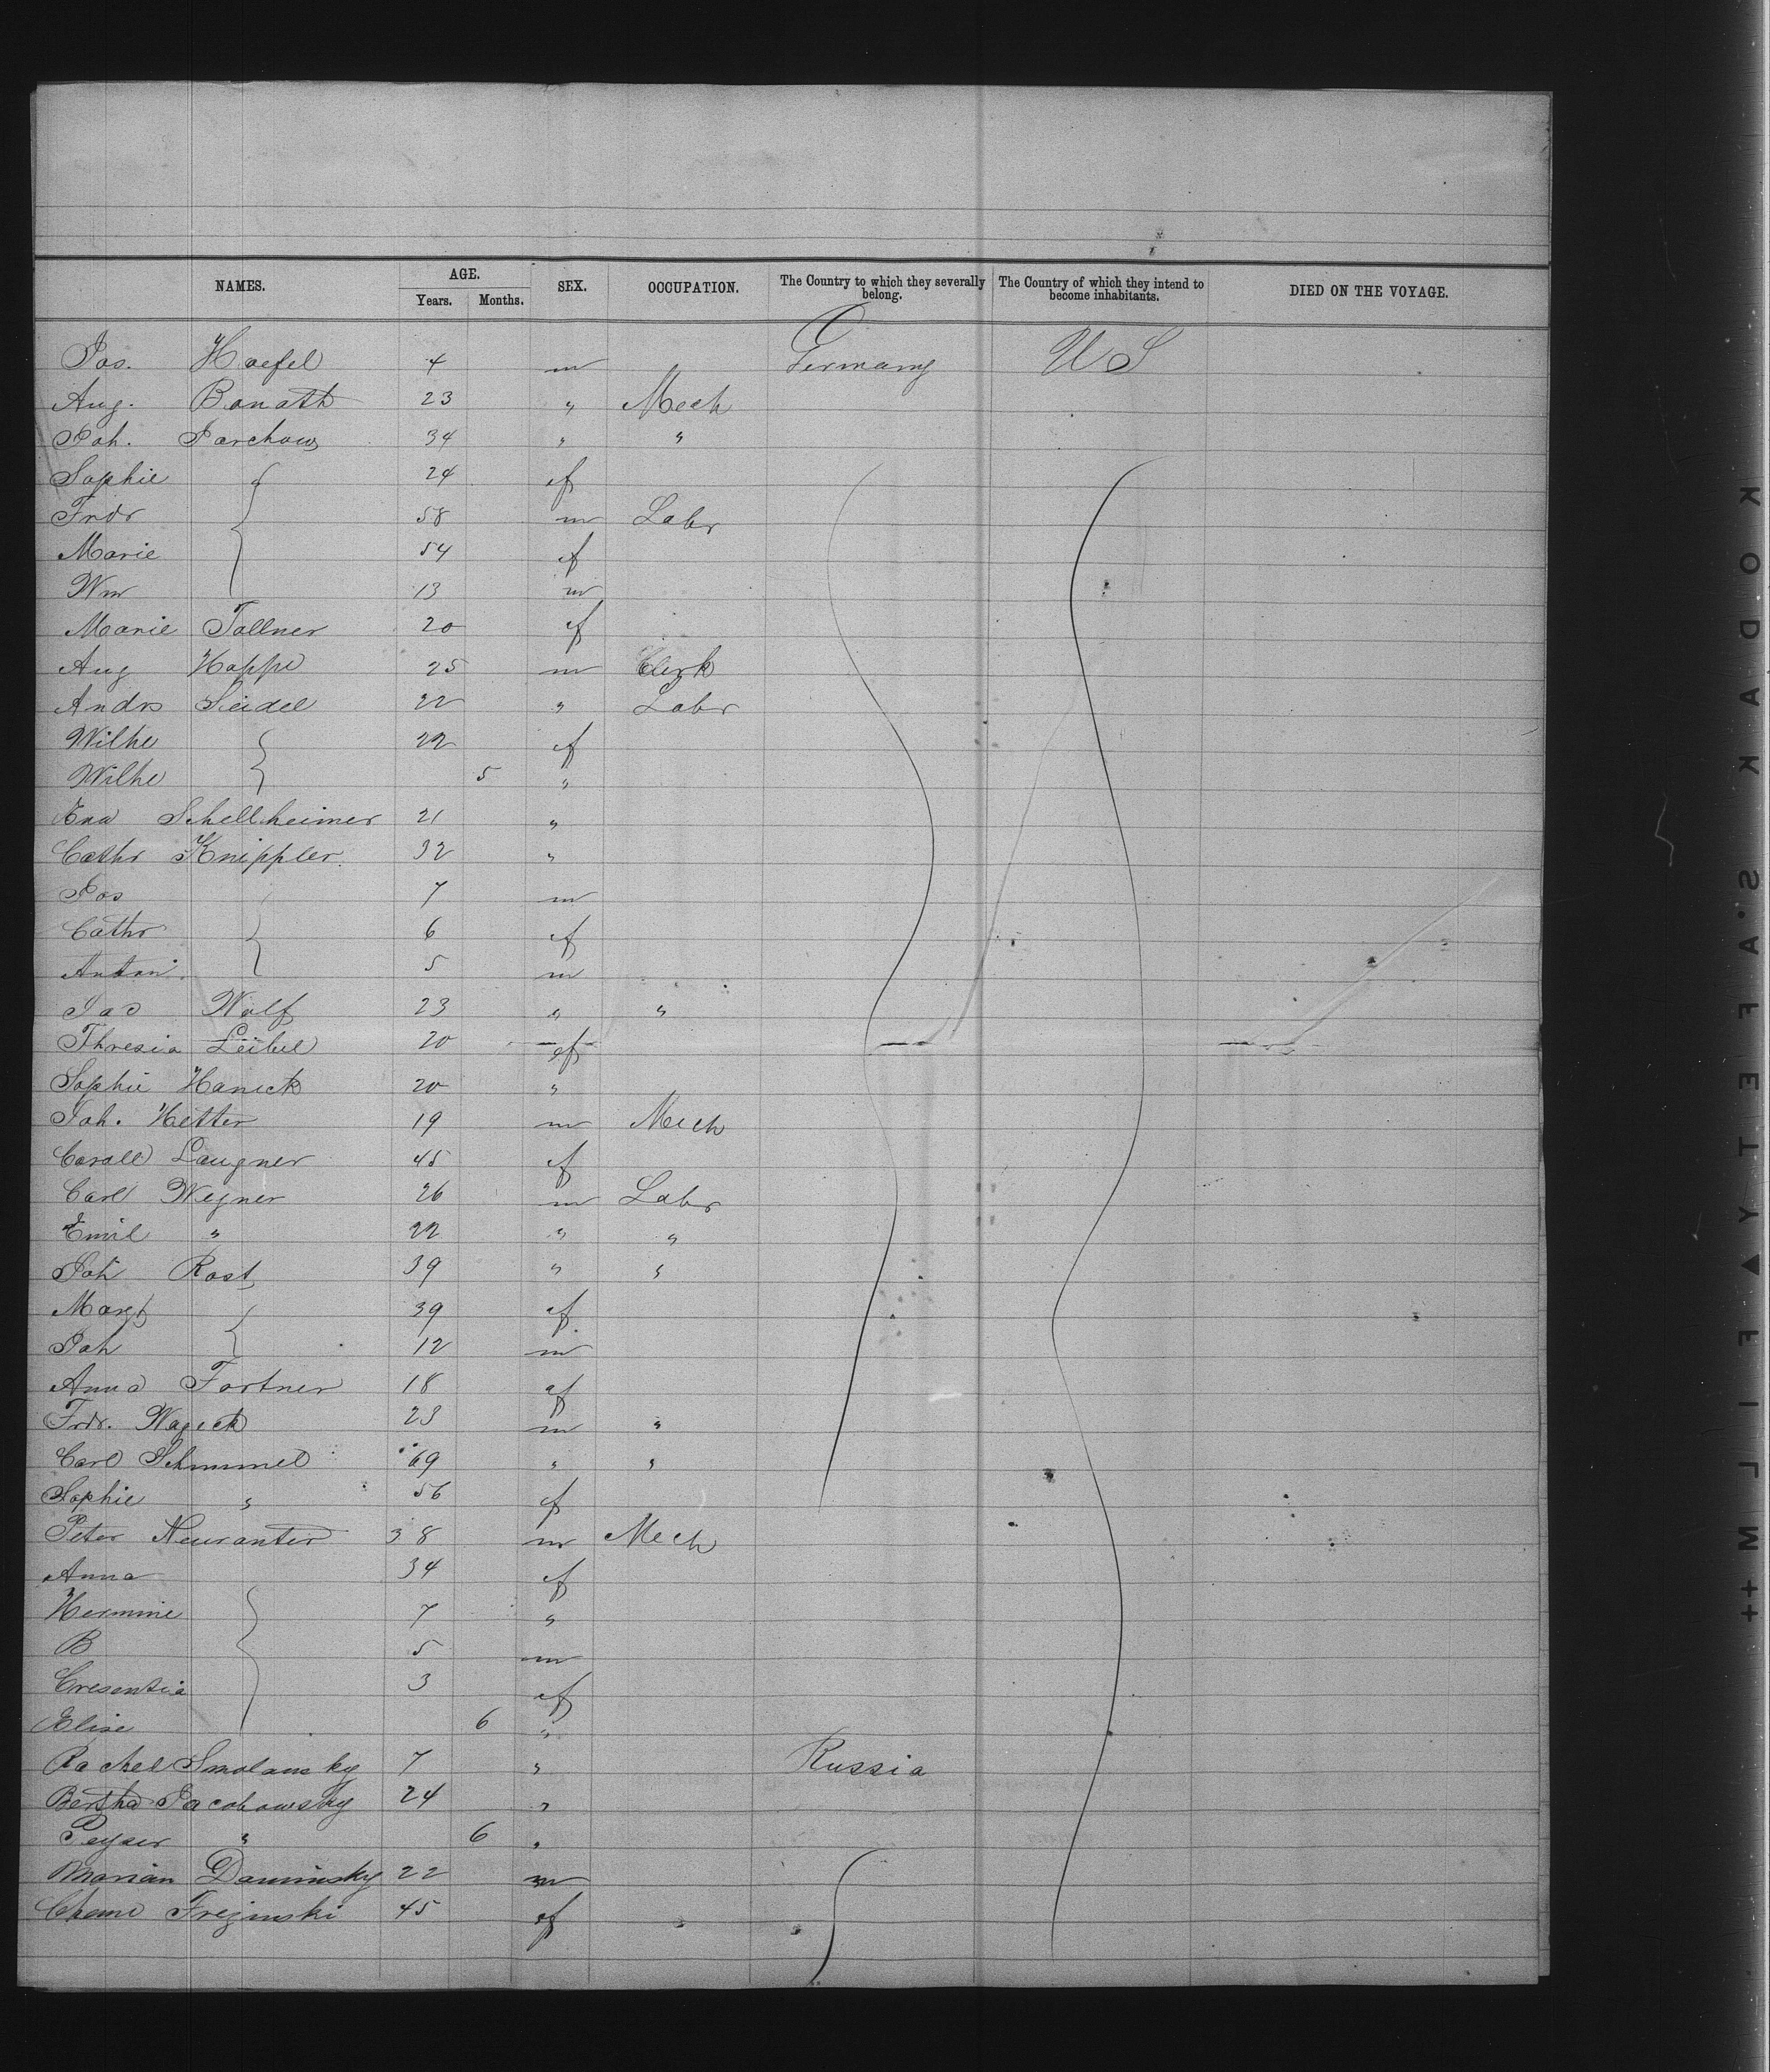 NAMES. AGE. Years. Months. SEX. OCCUPATION. The Country to which they severally belong. The Country of which they intend to become inhabitants. DIED ON THE VOYAGE.
Jos. Haefel 4 m Germany U S
Aug. Banath 23 " Mech
Joh. Parchow 34 " "
Sophie 24 f
Frdr 58 m Labr
Marie 54 f
Wm 13 m
Marie Tollner 20 f
Aug Hoppe 25 m Clerk
Andrs Seidel 22 " Labr
Wilhe 22 f
Wilhe 5 "
Eva Schellheimer 21 "
Cathr Knippler 32 "
Jos 7 m
Cathr 6 f
Anton 5 m
Jac Wolf 23 " "
Thresia Leibel 20 f
Sophie Hanick 20 "
Joh. Hetter 19 m Mech
Caroll Laugner 45 f
Carl Wegner 26 m Labr
Emil " 22 " "
Joh Rost 39 " "
Margt 39 f
Joh 12 m
Anna Fortner 18 f
Frdr. Wageck 23 m "
Carl Schimmel 69 " "
Sophie " 56 f
Peter Neuranter 38 m Mech
Anna 34 f
Hermine 7 "
B 5 m
Cresentia 3 f
Elise 6 "
Rachel Smolansky 7 " Russia
Bertha Jacobowsky 24 "
Peyser " 6 "
Marian Daminsky 22 m
Chane Frezinski 45 f
KODAK S.AFETY▲FILM ++